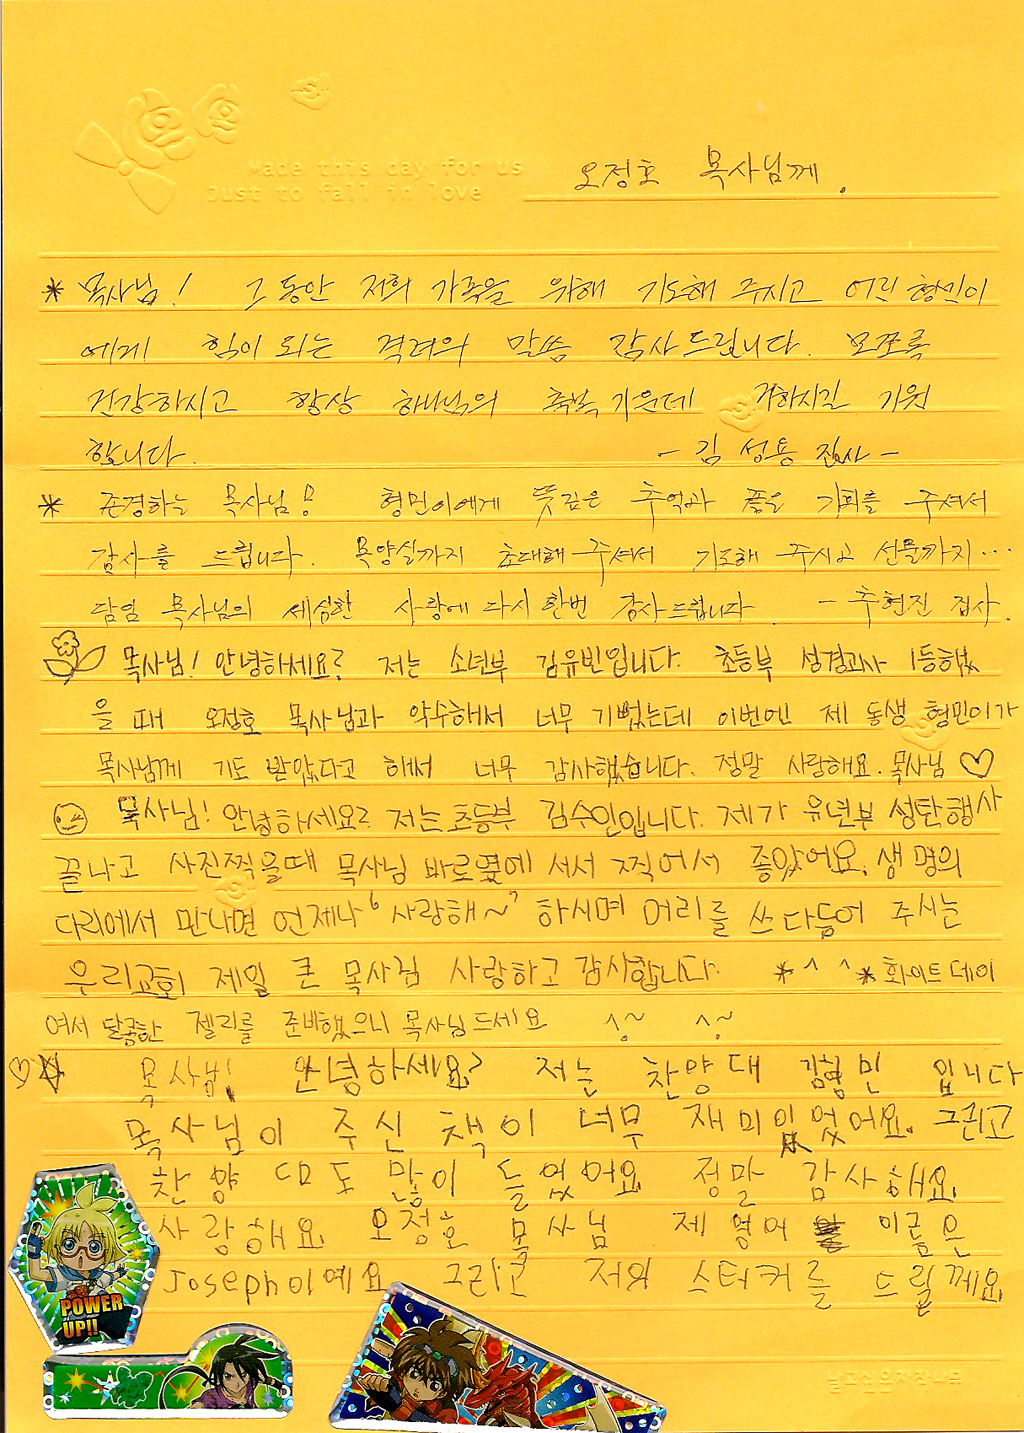 Made this day for us
Just to fall in love
오정호 목사님께.
* 목사님! 그동안 저희 가족을 위해 기도해 주시고 어린 형민이
에게 힘이 되는 격려의 말씀 감사드립니다. 모쪼록
건강하시고 항상 하나님의 축복 가운데 거하시길 기원
합니다. - 김성용 집사 -
* 존경하는 목사님! 형민이에게 뜻깊은 추억과 좋은 기회를 주셔서
감사를 드립니다. 목양실까지 초대해 주셔서 기도해 주시고 선물까지...
담임 목사님의 세심한 사랑에 다시 한번 감사드립니다. - 추현진 집사.
목사님! 안녕하세요? 저는 소년부 김유빈입니다. 초등부 성경고사 1등했
을 때 오정호 목사님과 악수해서 너무 기뻤는데 이번엔 제 동생 형민이가
목사님께 기도 받았다고 해서 너무 감사했습니다. 정말 사랑해요. 목사님 ♡
목사님! 안녕하세요? 저는 초등부 김수인입니다. 제가 유년부 성탄행사
끝나고 사진찍을때 목사님 바로옆에 서서 찍어서 좋았어요. 생명의
다리에서 만나면 언제나 '사랑해~' 하시며 머리를 쓰다듬어 주시는
우리교회 제일 큰 목사님 사랑하고 감사합니다. *^ ^* 화이트데이
여서 달콤한 젤리를 준비했으니 목사님 드세요 ^~ ^~
♡☆ 목사님! 안녕하세요? 저는 찬양대 김형민 입니다
목사님이 주신 책이 너무 재미있었어요. 그리고
찬양 CD도 많이 들었어요 정말 감사해요.
사랑해요 오정호 목사님 제 영어 이름은
Joseph이예요 그리고 저의 스티커를 드릴께요.
POWER
UP!!